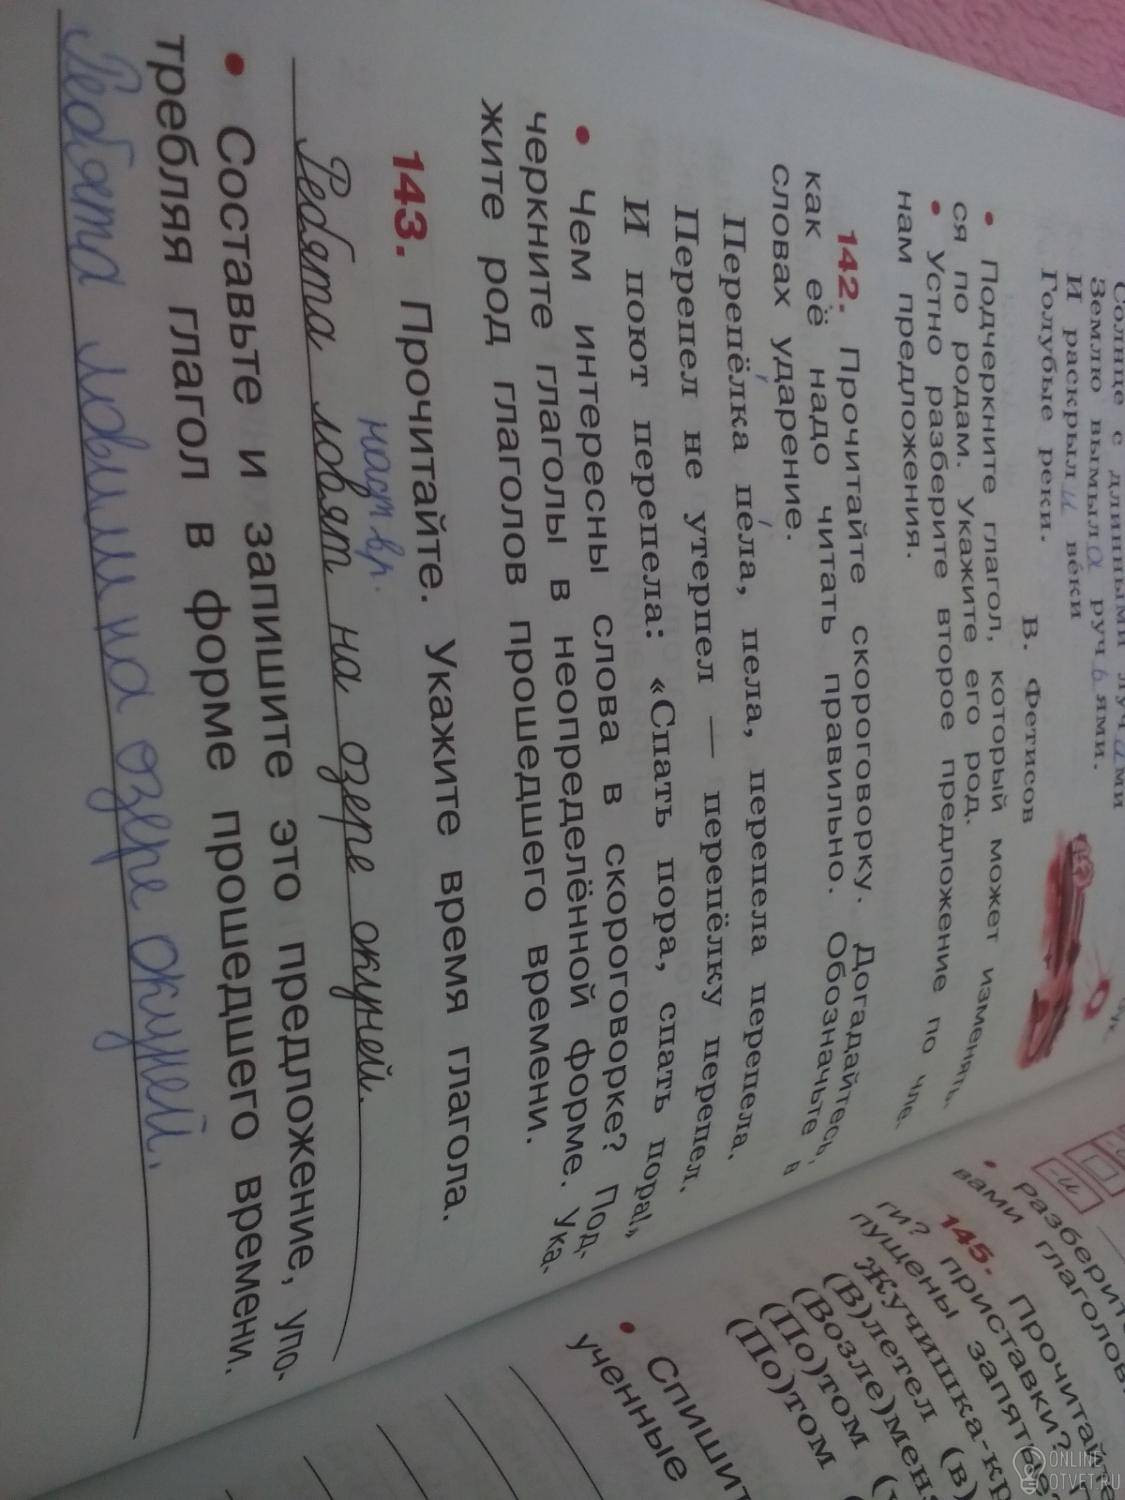 Солнце с длинными лучами
Землю вымыла ручьями.
И раскрыли ве́ки
Голубые реки.
В. Фетисов
• Подчеркните глагол, который может изменять-
ся по родам. Укажите его род.
• Устно разберите второе предложение по чле-
нам предложения.
142. Прочитайте скороговорку. Догадайтесь,
как её надо читать правильно. Обозначьте в
словах ударение.
Перепёлка пе́ла, пе́ла, перепела перепела.
Перепел не утерпел — перепёлку перепел.
И поют перепела: «Спать пора, спать пора!»
• Чем интересны слова в скороговорке? Под-
черкните глаголы в неопределённой форме. Ука-
жите род глаголов прошедшего времени.
143. Прочитайте. Укажите время глагола.
наст вр.
Ребята ловят на озере окуней.
• Составьте и запишите это предложение, упо-
требляя глагол в форме прошедшего времени.
Ребята ловили на озере окуней.
-и
разберите
вами глаголов
145. Прочитайте
ги? приставки?
пущены запятые?
Жучишка-кр
(В)летел (в)
(Возле)мен
(По)том
(По)том
• Спишит
ученные
ONLINE
OTVET.RU